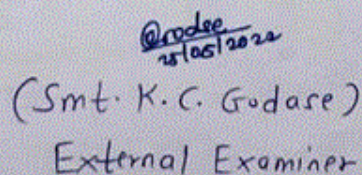 Godse
25/05/2022
(Smt. K. C. Godase)
External Examiner